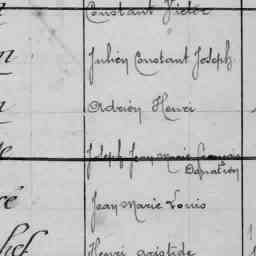 Constant Victor
Julien Constant Joseph
Adrien Henri
Joseph Jean Marie François
Donatien
Jean Marie Louis
Henri Aristide